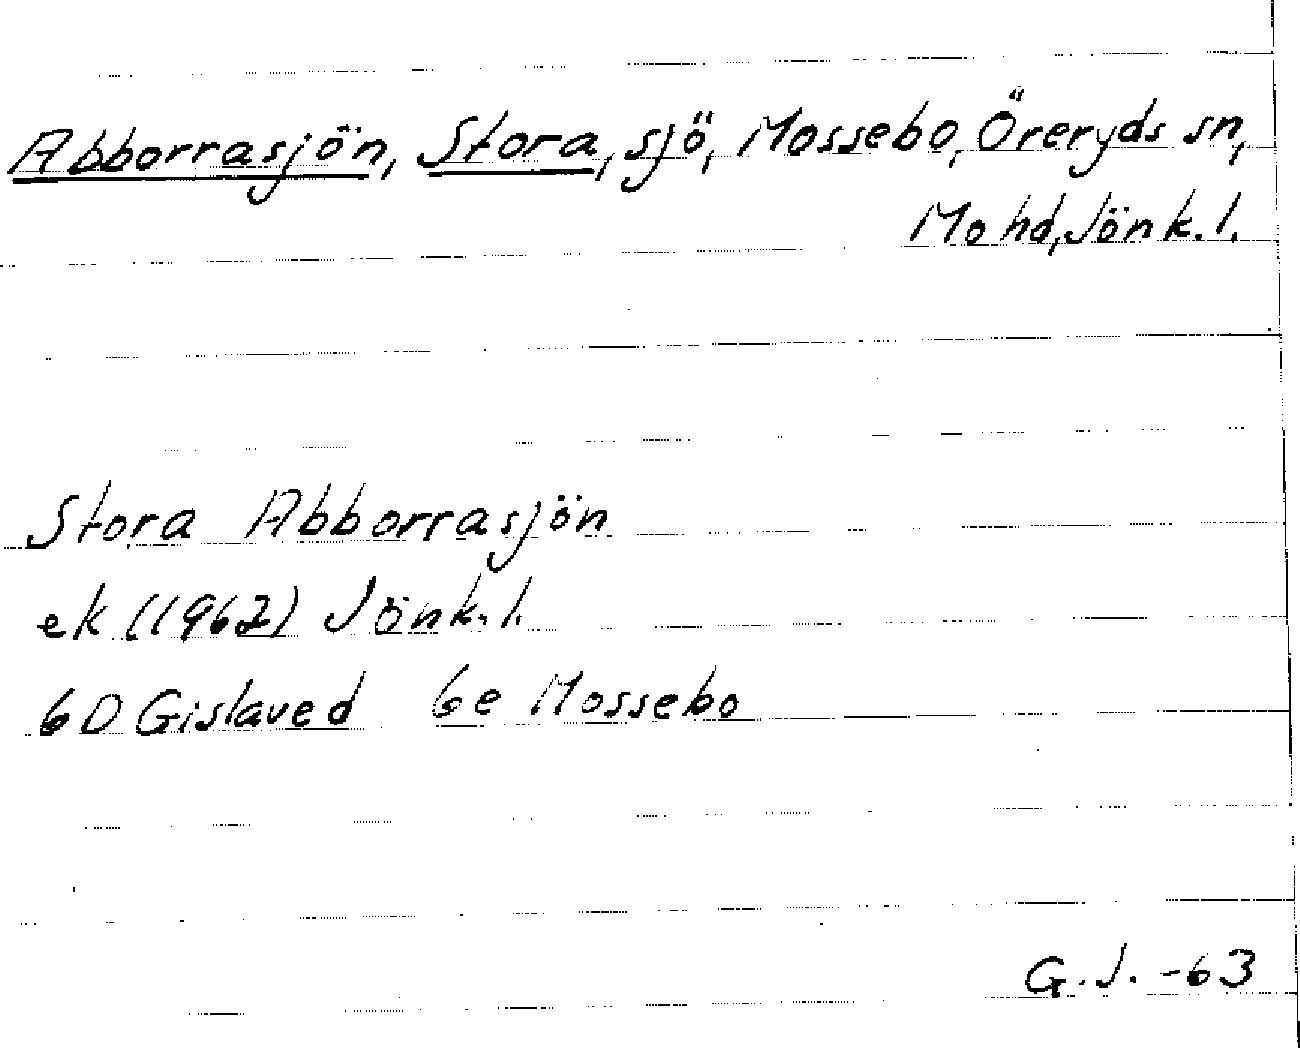 Abborrasjön, Stora, sjö, Mossebo, Öreryds sn,
Mo hd, Jönk. l.
Stora Abborrasjön
ek (1962) Jönk. l.
6D Gislaved 6e Mossebo
G. J. -63